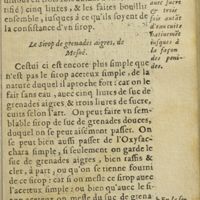 tifié) cinq liures, & les faites bouillir
ensemble, iusques à ce qu'ils soyent de
la consistance d'vn sirop.
Le sirop de grenades aigres, de
Mesué.
Cestui ci est encore plus simple que
n'est pas le sirop aceteux simple, de la
nature duquel il aproche fort: car on le
fait sans eau, auec cinq liures de suc de
grenades aigres, & trois liures de sucre,
cuits selon l'art. On peut faire vn sem-
blable sirop de suc de grenades douces,
duquel on se peut aisement passer. On
se peut bien aussi passer de l'Oxysac-
chara simple, si seulement on garde le
suc de grenades aigres, bien rassis &
cler, à part, ou qu'on se tienne fourni
de ce sirop: car si on mesle ce sirop auec
l'aceteux simple: ou bien qu'auec le si-
aceteux on mesle du suc de grena-
auec sucre
trois
cuite
iusques à
la façon
des peni-
des.